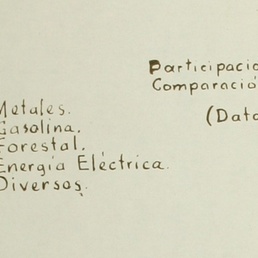 Participacio
Comparació
(Data
Metales.
Gasolina.
Forestal.
Energía Eléctrica.
Diversos.